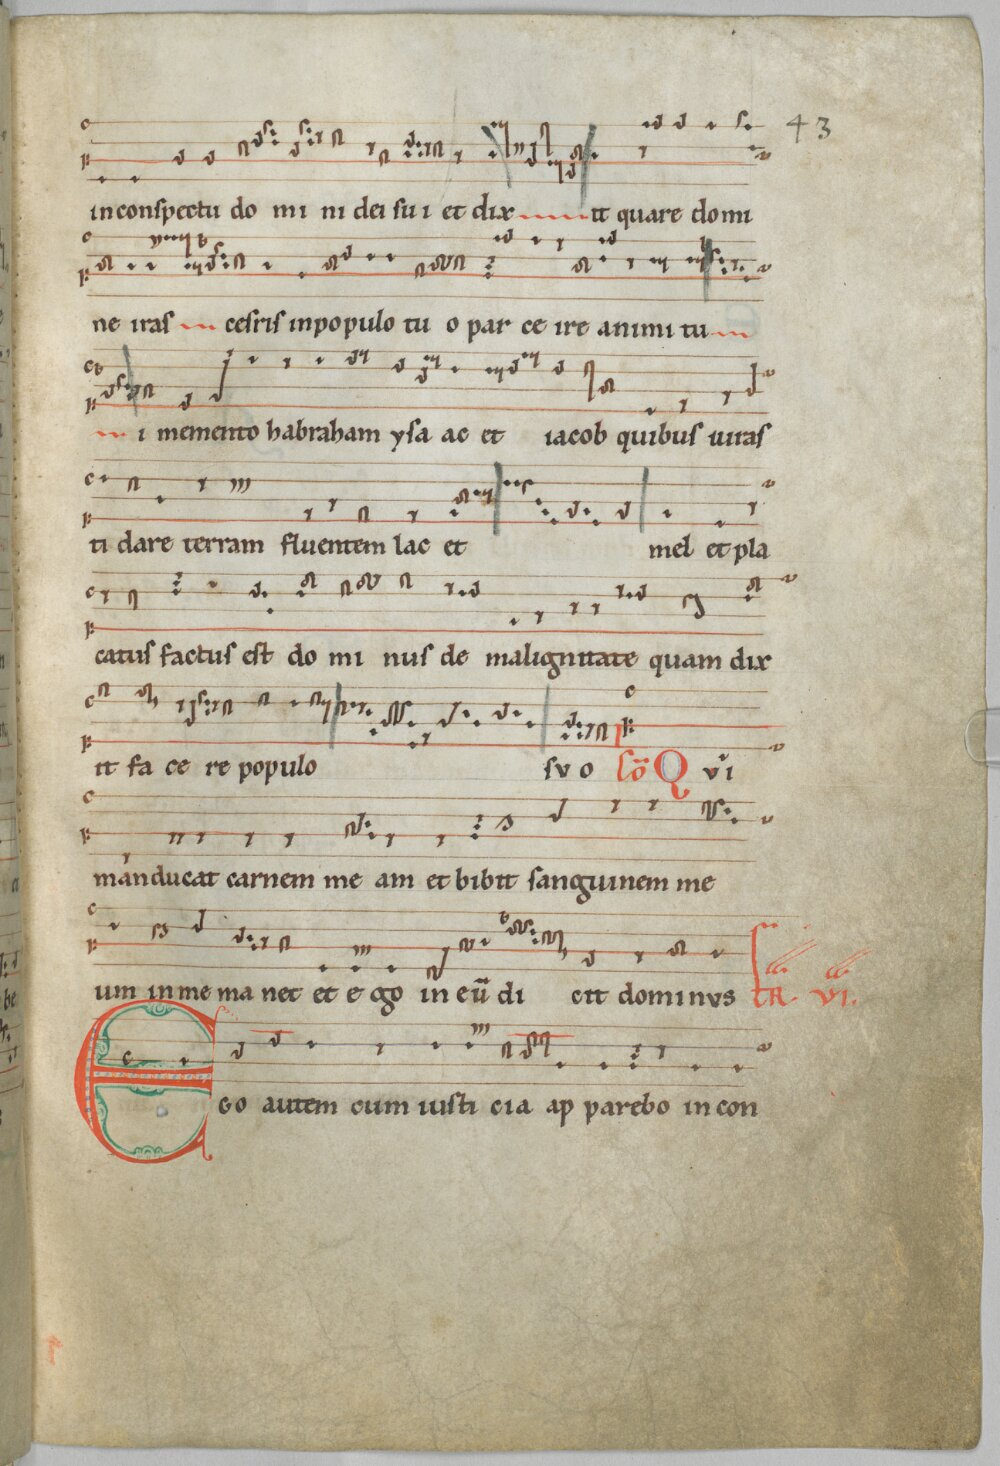 43
inconspectu do mi ni dei su i et dix it quare domi
ne iras cesris inpopulo tu o par ce ire animi tu
i memento habraham ysa ac et iacob quibus iuras
ti dare terram fluentem lac et mel et pla
catus factus est do mi nus de malignitate quam dix
it fa ce re populo su o Co Q vi
manducat carnem me am et bibit sanguinem me
um in me ma net et e go in eū di cit dominus TR. VI.
EGo autem cum iusti cia ap parebo in con